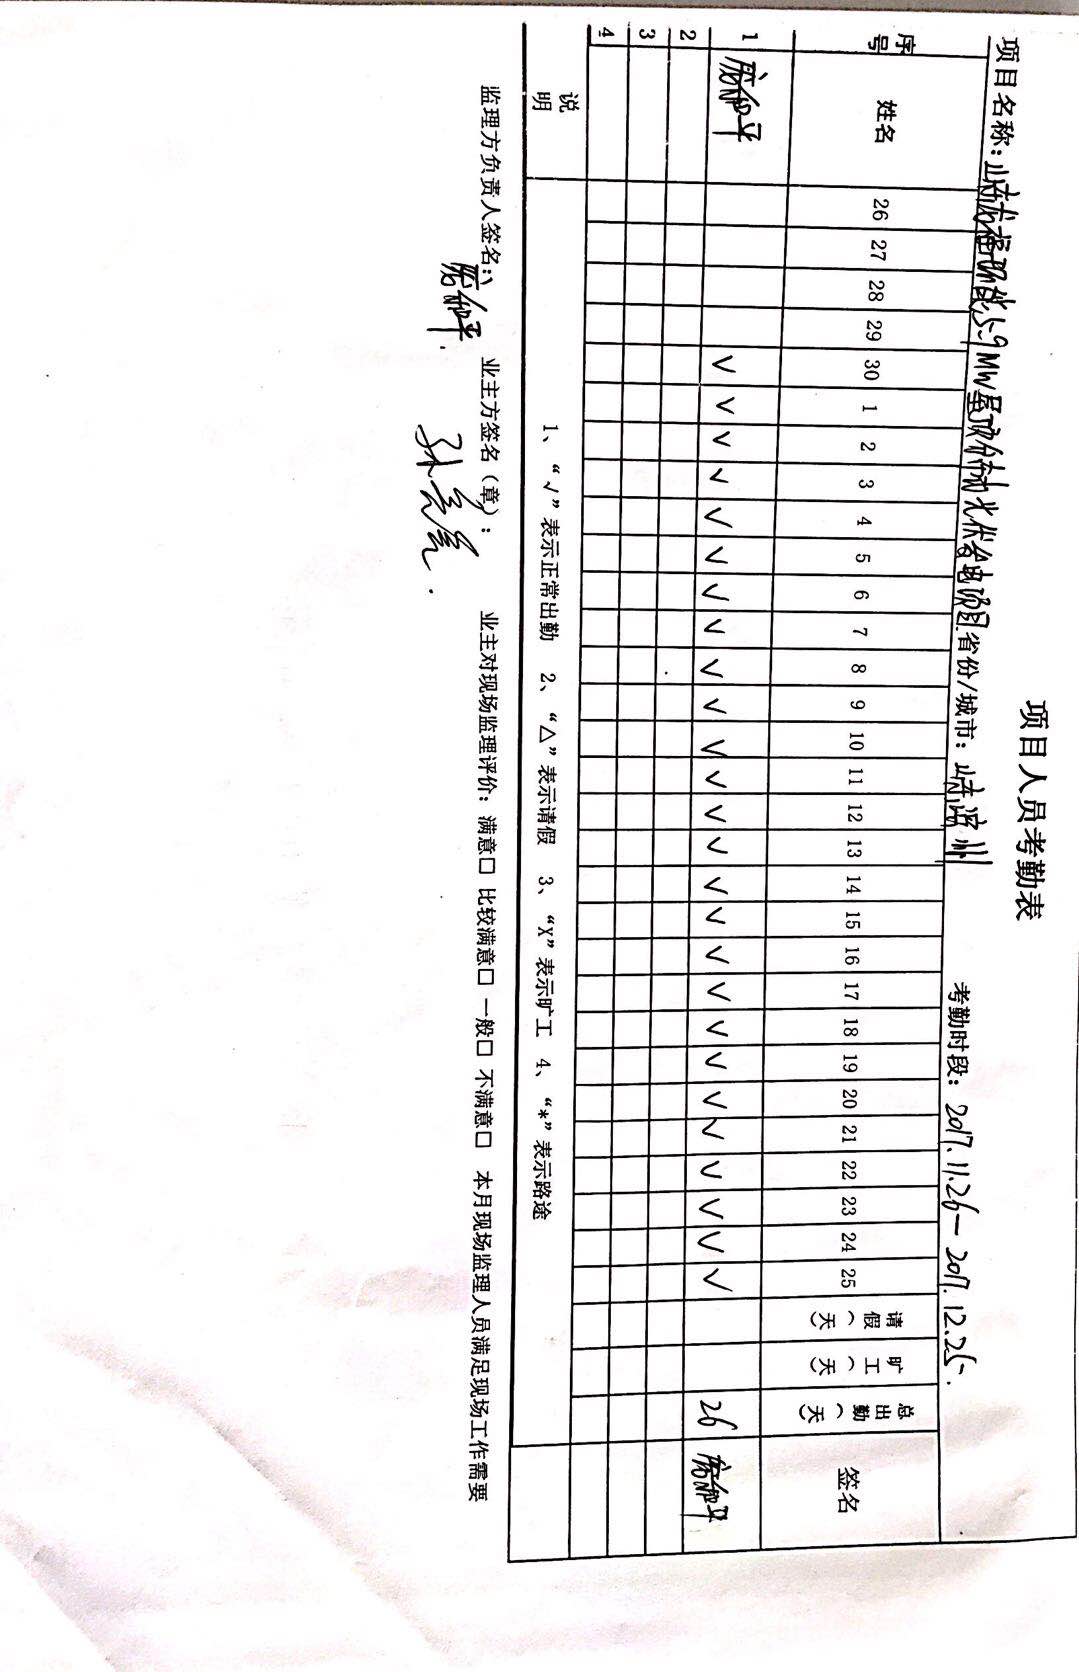 项目人员考勤表
项目名称：山东龙福环能5.9MW屋顶分布式光伏发电项目 省份/城市：山东滨州 考勤时段：2017.11.26—2017.12.25.
序号 姓名 26 27 28 29 30 1 2 3 4 5 6 7 8 9 10 11 12 13 14 15 16 17 18 19 20 21 22 23 24 25 请假（天） 旷工（天） 总出勤（天） 签名
1 √ √ √ √ √ √ √ √ √ √ √ √ √ √ √ √ √ √ √ √ √ √ √ √ √ √ 26
2
3
4
说明 1、“√”表示正常出勤 2、“△”表示请假 3、“X”表示旷工 4、“*”表示路途
监理方负责人签名： 业主方签名（章）： 业主对现场监理评价：满意□ 比较满意□ 一般□ 不满意□ 本月现场监理人员满足现场工作需要